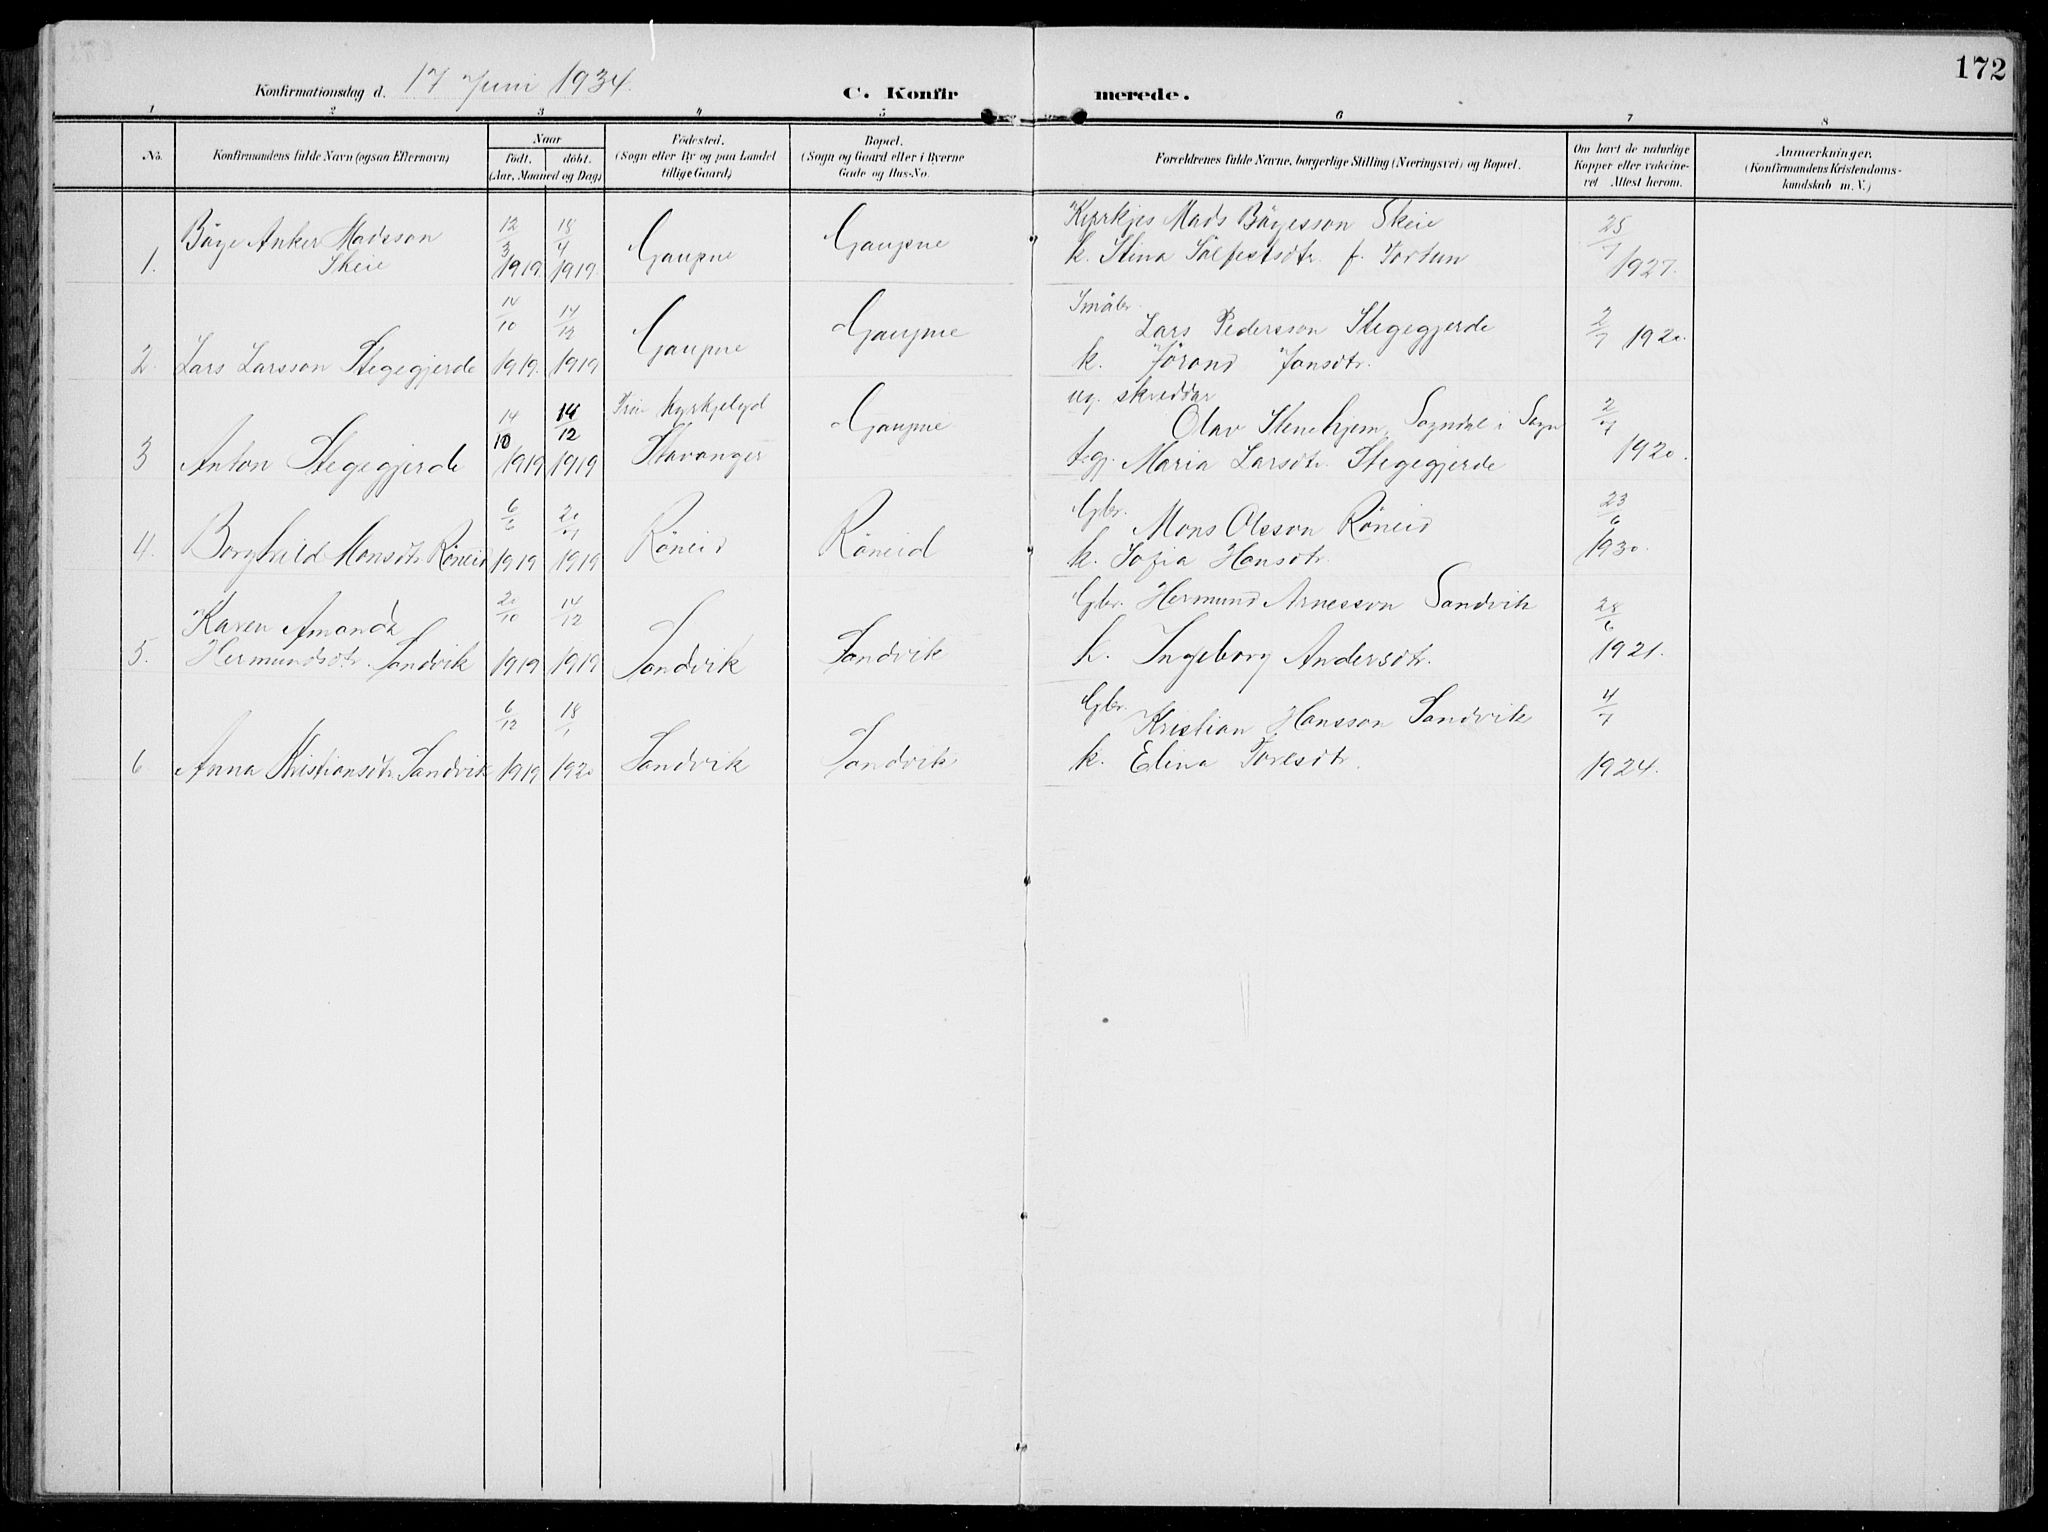 172
Konfirmationsdag d. 17 Juni 1934.
C. Konfir merede.
1 2 3 4 5 6 7 8
No.
Konfirmandens fulde Navn (ogsaa Efternavn)
Naar
født. døbt.
(Aar, Maaned og Dag)
Fødested.
(Sogn eller By og paa Landet
tillige Gaard)
Bopæl.
(Sogn og Gaard eller i Byerne
Gade og Hus-No.
Forældrenes fulde Navne, borgerlige Stilling (Næringsvei) og Bopæl.
Om havt de naturlige
Kopper eller vakcine-
ret Attest herom.
Anmærkninger.
(Konfirmandens Kristendoms-
kundskab m. V.)
1. Böye Anker Madsson
Skeie
12/3 1919 18/4 1919.
Gaupne
Gaupne
Kyrkjes Mads Böyesson Skeie
k. Stina Sölfestsdtr. f. Fortun
25/7 1927.
2. Lars Larsson Stegegjerde
14/10 1919. 14/12 1919
Gaupne
Gaupne
Småbr.
Lars Pedersson Stegegjerde
k. Jörond Jonsdtr.
2/7 1920.
3 Anton Stegegjerde
14/10 1919 14/12 1919
kyrkjelyd
Stavanger
Gaupne
ug. skreddar
Olav Stenehjem, Sogndal i Sogn
t.gj. Maria Larsdtr. Stegegjerde
2/7 1920.
4. Borghild Monsdtr Röneid
6/6 1919 20/7 1919
Röneid
Röneid
Gbr.
Mons Olsson Röneid
k. Sofia Hansdtr.
23/6 1930.
5. Karen Amanda
Hermundsdtr. Sandvik
20/10 1919 14/12 1919
Sandvik
Sandvik
Gbr. Hermund Arnesson Sandvik
k. Ingeborg Andersdtr.
28/6 1921.
6 Anna Kristiansdtr Sandvik
6/12 1919 18/1 1920
Sandvik
Sandvik
Gbr.
Kristian Hansson Sandvik
k. Elina Toresdtr.
4/7 1924.